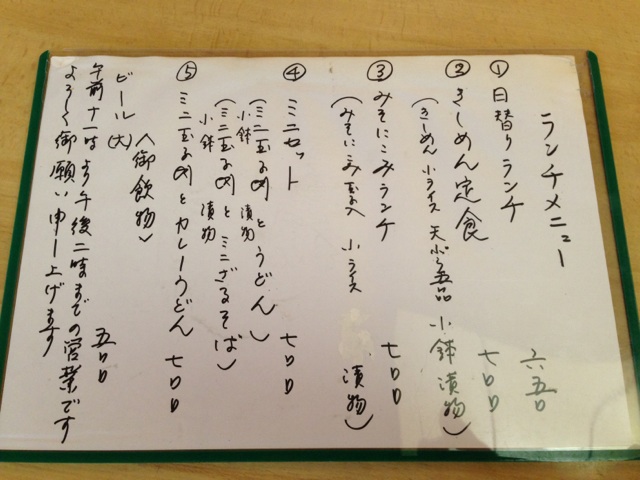 ランチメニュー
① 日替りランチ 六五〇
② きしめん定食 七〇〇
(きしめん 小ライス 天ぷら五品 小鉢 漬物)
③ みそにこみランチ 七〇〇
(みそにこみ玉子入 小ライス 漬物)
④ ミニセット 七〇〇
(ミニ玉子丼とうどん)
小鉢 漬物
(ミニ玉子丼とミニざるそば)
小鉢 漬物
⑤ ミニ玉子丼とカレーうどん 七〇〇
〈御飲物〉
ビール(大) 五〇〇
午前十一時より午後二時までの営業です
よろしく御願い申し上げます